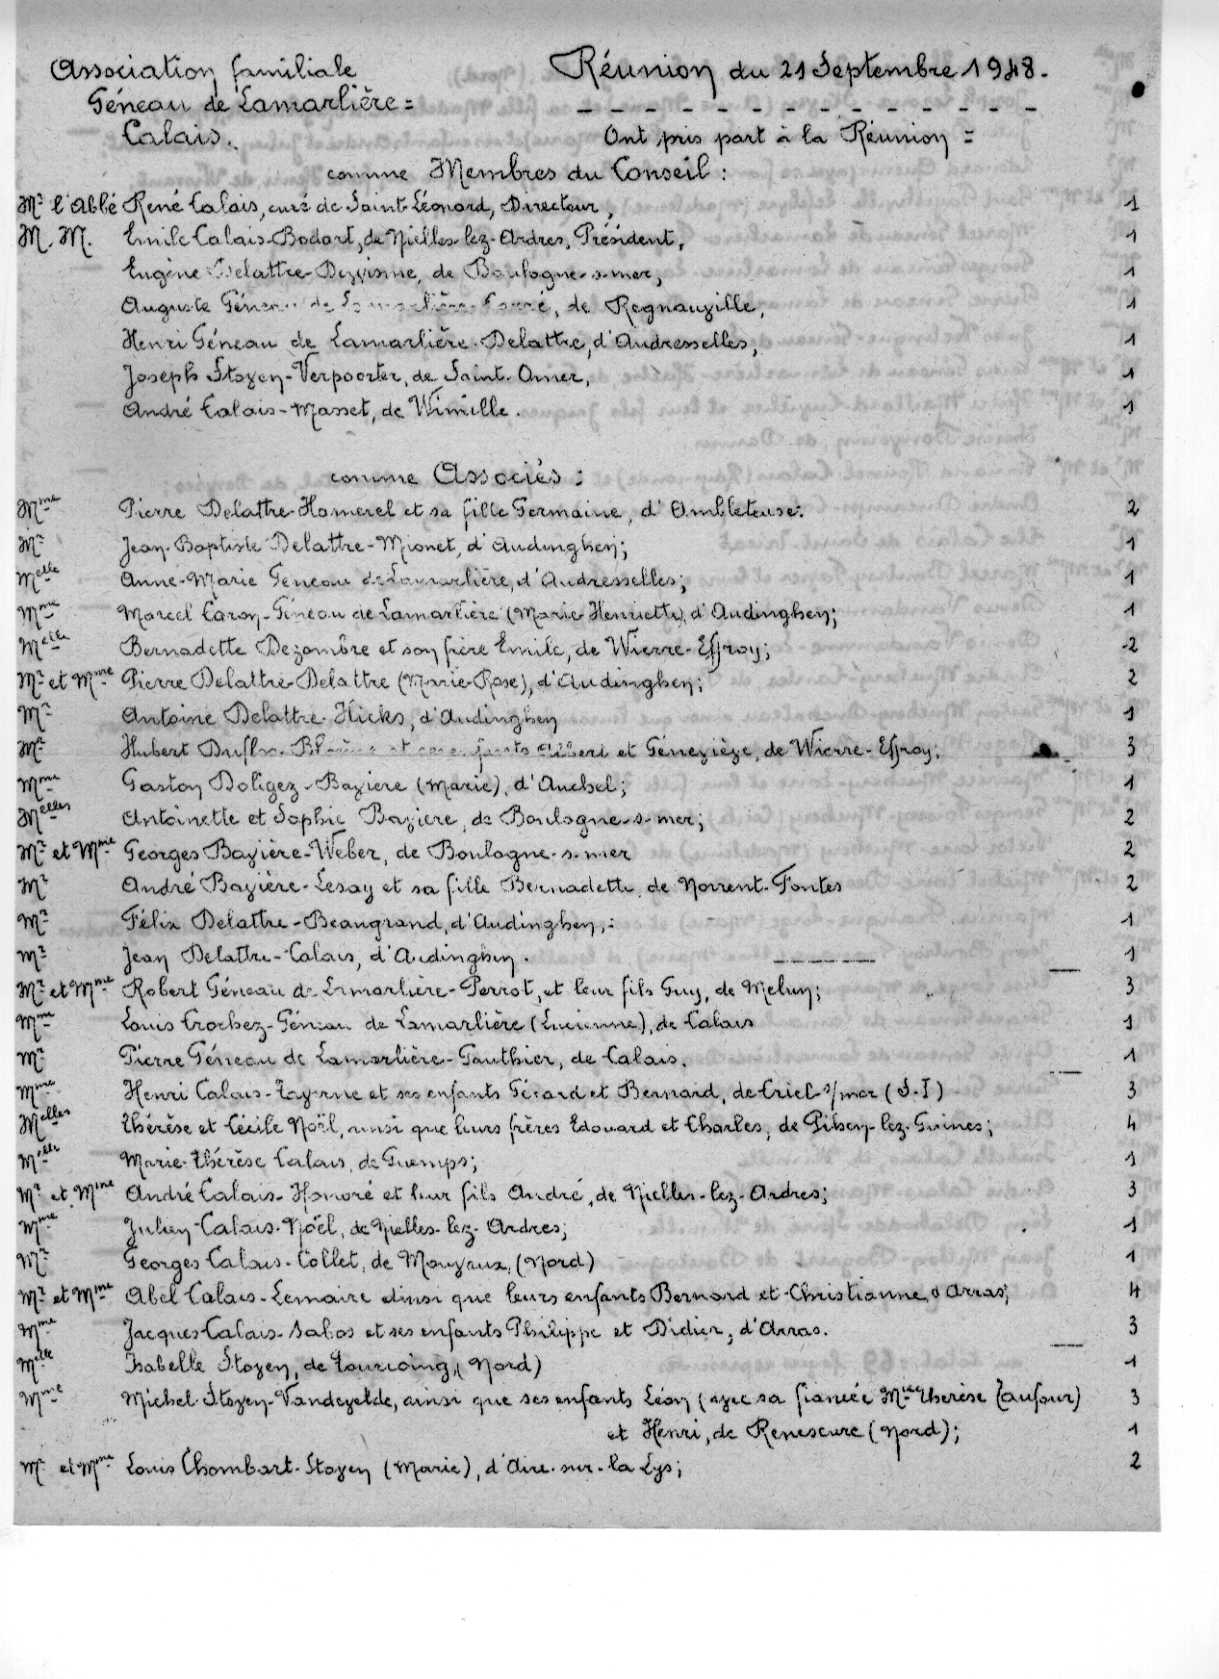 Association familiale
Géneau de Lamarlière =
Calais.
Réunion du 21 Septembre 1948.
Ont pris part à la Réunion =
comme Membres du Conseil :
Mr l'Abbé René Calais, curé de Saint-Léonard, Directeur, 1
M. M. Emile Calais-Bodart, de Nielles-lez-Ardres, Président, 1
Eugène Delattre-Dezoisme, de Boulogne-s-mer, 1
Auguste Géneau de Lamarlière, de Regnauville, 1
Henri Géneau de Lamarlière-Delattre, d'Audresselles, 1
Joseph Stoven-Verpoorter, de Saint-Omer, 1
André Calais-Masset, de Wimille. 1
comme Associés :
Mme Pierre Delattre-Homerel et sa fille Germaine, d'Ambleteuse. 2
Mr Jean-Baptiste Delattre-Mionet, d'Audinghen; 1
Melle Anne-Marie Géneau de Lamarlière, d'Audresselles; 1
Mme Marcel Caron-Géneau de Lamarlière (Marie-Henriette) d'Audinghen; 1
Melle Bernadette Dezombre et son frère Emile, de Wierre-Effroy; 2
Mr et Mme Pierre Delattre-Delattre (Marie-Rose), d'Audinghen; 2
Mr Antoine Delattre-Hicks, d'Audinghen 1
Mr Hubert et ses enfants Albert et Géneviève, de Wierre-Effroy; 3
Mme Gaston Doligez-Bavière (Marie), d'Auchel; 1
Melles Antoinette et Sophie Bavière, de Boulogne-s-mer; 2
Mr et Mme Georges Bavière-Weber, de Boulogne-s-mer 2
Mr André Bavière-Lesay et sa fille Bernadette, de Norrent-Fontes 2
Mr Félix Delattre-Beaugrand, d'Audinghen; 1
Mr Jean Delattre-Calais, d'Audinghen. 1
Mr et Mme Robert Géneau de Lamarlière-Perrot, et leur fils Guy, de Melun; 3
Mme Louis Crochez-Géneau de Lamarlière (Lucienne), de Calais 1
Mr Pierre Géneau de Lamarlière-Gauthier, de Calais. 1
Mme Henri Calais-Taverne et ses enfants Gérard et Bernard, de Criel s/mer (S-I) 3
Melles Thérèse et Cécile Noël, ainsi que leurs frères Edouard et Charles, de Pihen-lez-Guines; 4
Melle Marie-Thérèse Calais, de Guemps; 1
Mr et Mme André Calais-Honoré et leur fils André, de Nielles-lez-Ardres; 3
Mme Julien Calais-Noël, de Nielles-lez-Ardres; 1
Mr Georges Calais-Collet, de Mouvaux, (Nord) 1
Mr et Mme Abel Calais-Lemaire ainsi que leurs enfants Bernard et Christianne, d'Arras; 4
Mme Jacques Calais-Salos et ses enfants Philippe et Didier, d'Arras. 3
Melle Isabelle Stoven, de Tourcoing, (Nord) 1
Mme Michel Stoven-Vandevelde, ainsi que ses enfants Léon (avec sa fiancée Mie Thérèse Caufour) 3
et Henri, de Renescure (Nord); 1
Mr et Mme Louis Chombart-Stoven (Marie), d'Aire-sur-la-Lys; 2